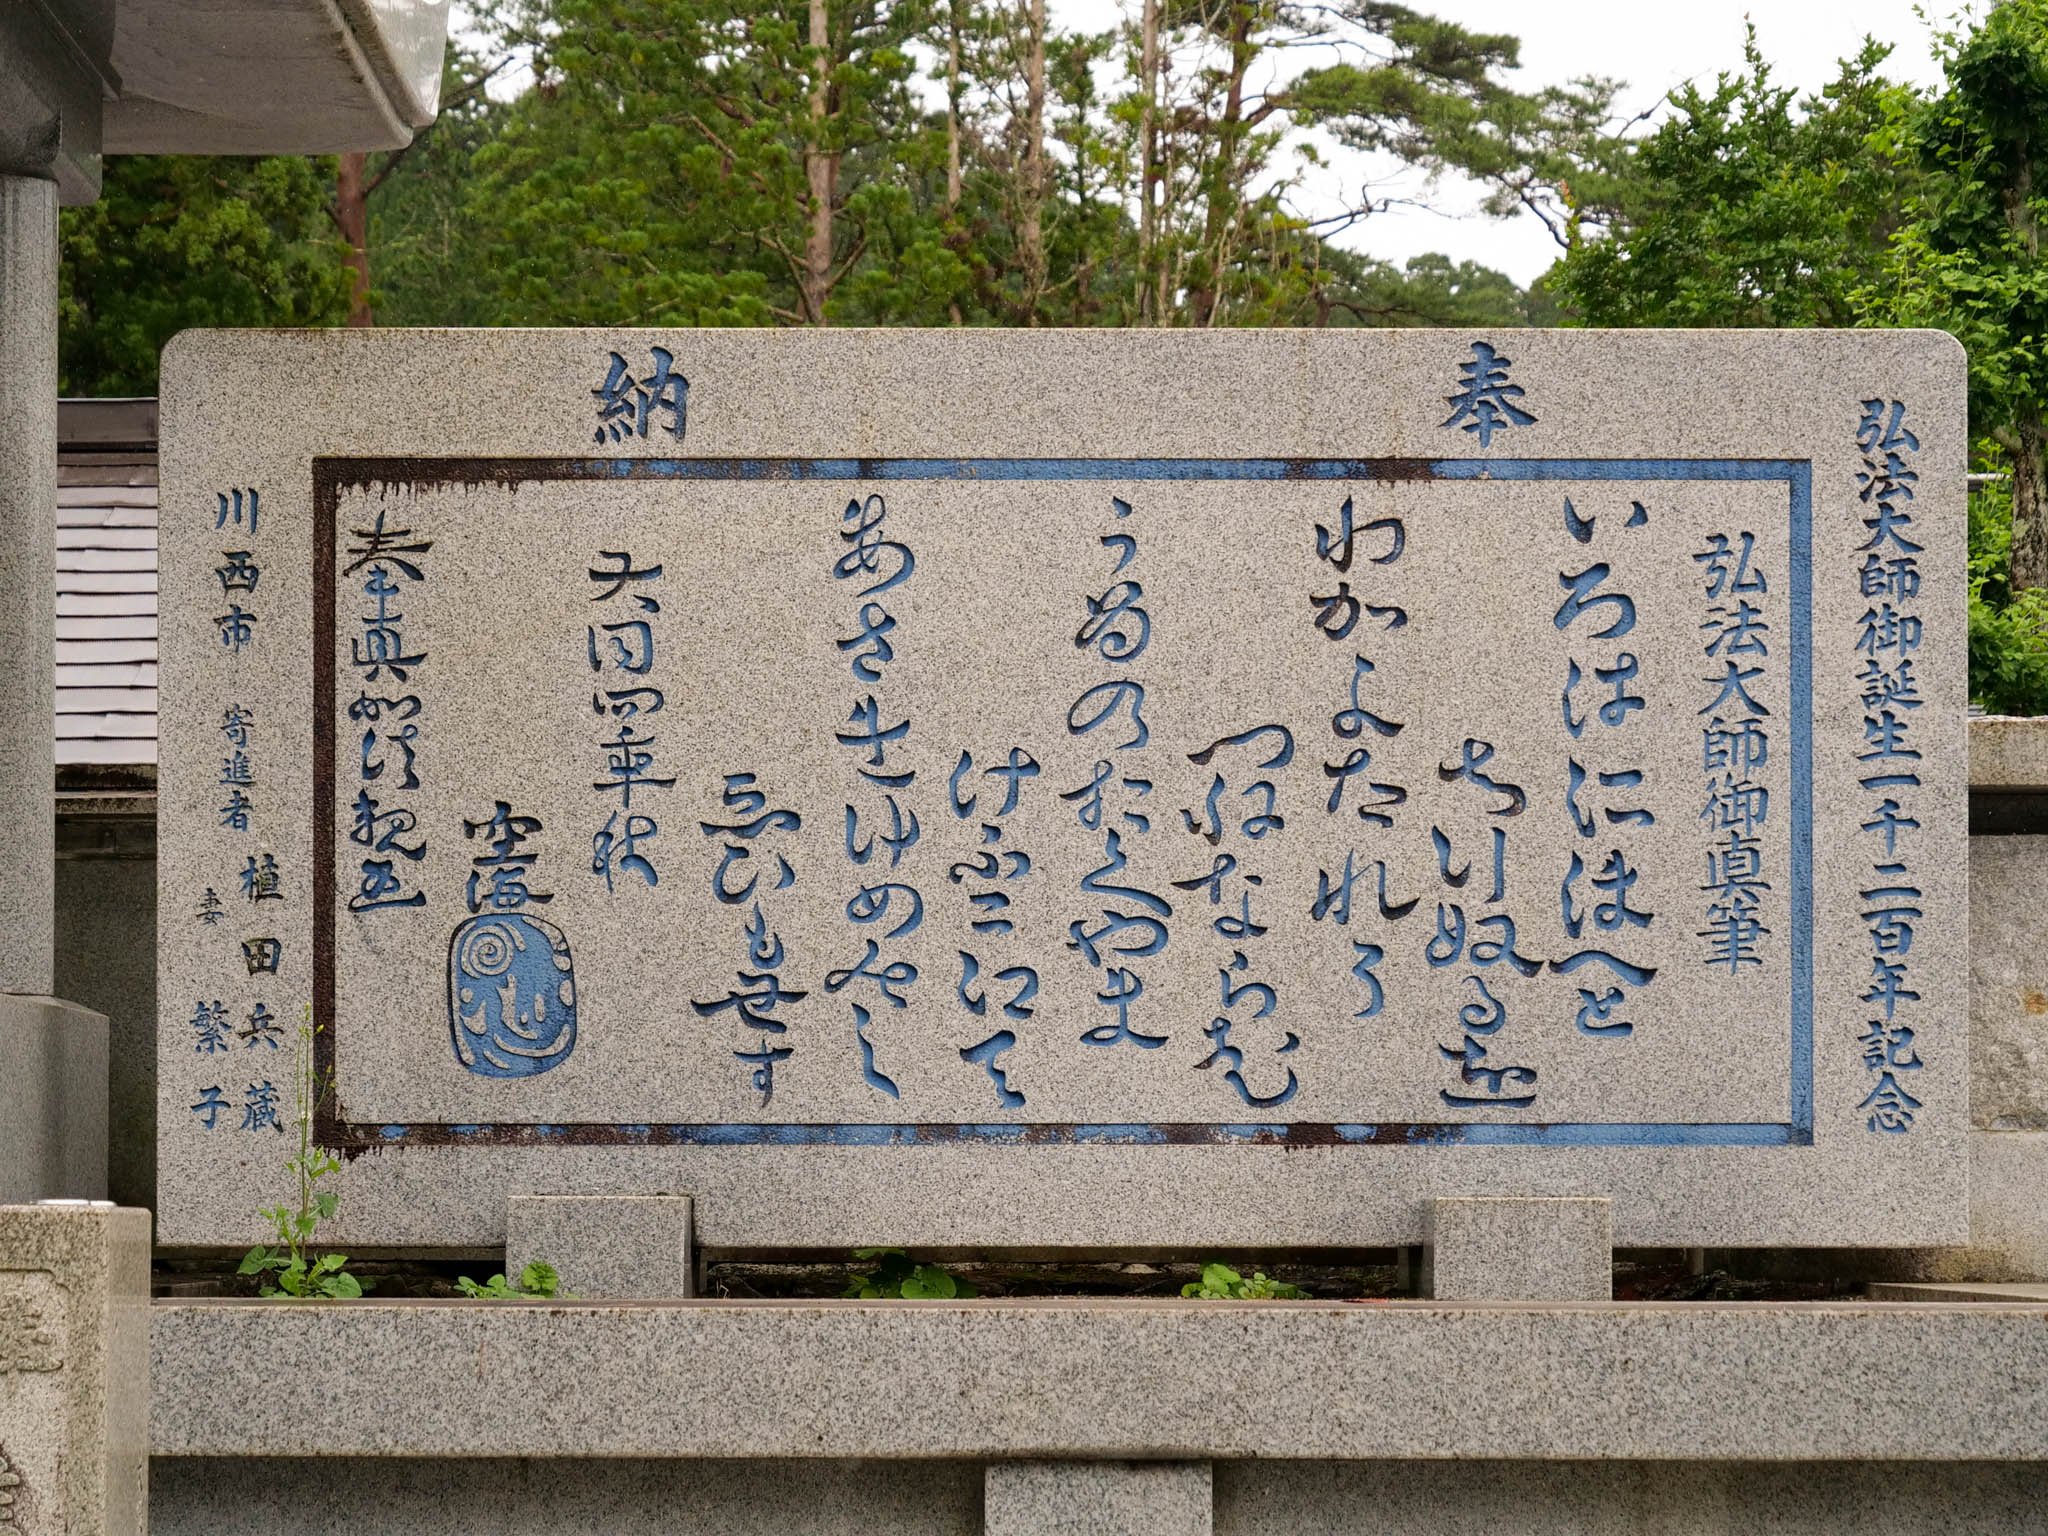 弘法大師御誕生一千二百年記念
奉納
弘法大師御真筆
いろはにほへと
ちり奴る遠
わかよたれろ
つねならむ
うゐのおくやま
けふこ江て
あさきゆめみし
ゑひもせす
大同四年秋
空海
奉真如法親王
川西市 寄進者 植田兵蔵
妻 繁子